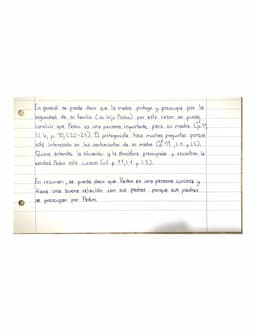 En general se puede decir que la madre protege y preocupa por la
seguridad de su familia (su hijo Pedro), por esta razón se puede
concluir que Pedro es una persona importante para su madre (cf. p. 11,
l. 4, p. 10, l. 20-21). El protagonista hace muchas preguntas porque
está interesado en los sentimientos de su madre (cf. p. 11, l. 1, p.
Quiere entender la situación y la atmósfera preocupada y encontrar la
verdad. Pedro está curioso (cf. p. 11, l. 1, p. l. 5).
En resumen, se puede decir que Pedro es una persona curiosa y
tiene una buena relación con sus padres porque sus padres
se preocupan por Pedro.